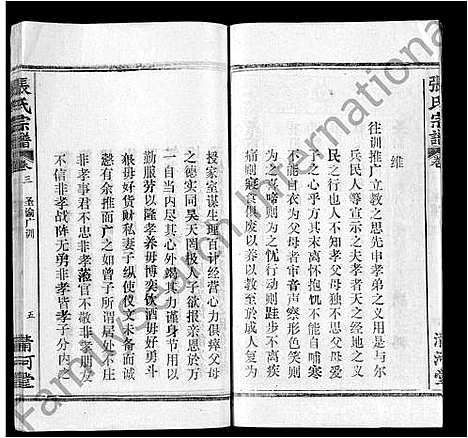 張氏宗譜
維
往訓推广立教之思先申孝弟之义用是与尔
兵民人等宣示之夫孝者天之经地之义
民之行也人不知孝父母独不思父母爱
子之心乎方其未离怀抱饥不能自哺寒
不能自衣为父母者审音声察形色笑则
为之喜啼则为之忧行动则跬步不离疾
痛则寝食俱废以养以教至於成人复为
授家室谋生理百计经营心力俱瘁父母
之德实同昊天罔极人子欲报亲恩於万
一自当内尽其心外竭其力谨身节用以
勤服劳以隆孝养毋博奕饮酒毋好勇斗
狠毋好货财私妻子纵使仪文未备而诚
悫有余推而广之如曾子所谓居处不庄
非孝事君不忠非孝蒞官不敬非孝朋友
不信非孝战阵无勇非孝皆孝子分内之
張氏宗譜
卷三
圣谕广训
五
清河堂
Family Search International